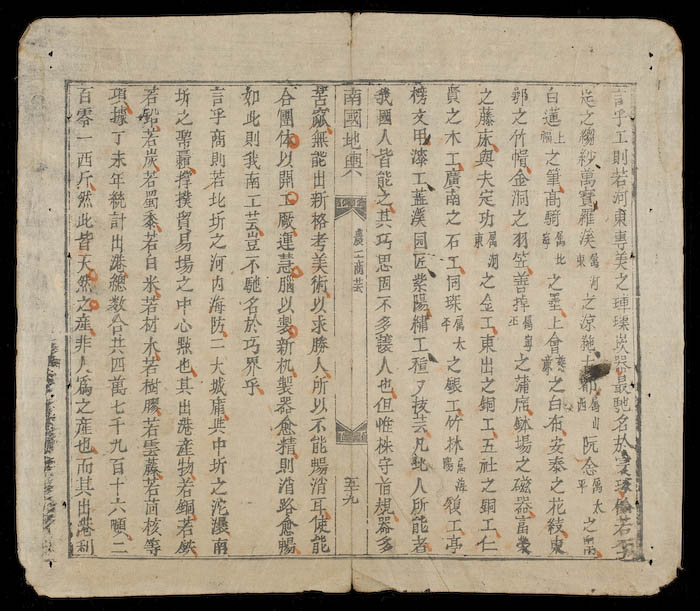 言乎工則若河東專美之璉璖炭器最馳名於
定之縐紗萬寶羅漢屬河東之涼鞄
屬山西阮念屬太平之帛
白蓮上福之筆高騎屬北海之壘上會之白布安泰之花綾東
鄣之竹帽金洞之羽笠善掉屬寧之蒲席鉢塲之磁器富榮
之藤床與夫定功屬湖東之金工東出之銅工五社之銅工仁
賢之木工廣南之石工同琛屬太平之銀工竹林屬海陽鎖工亭
楞文甲漆工藍漢園匠紫陽繡工種又技芸凡此人所能者
我國人皆能之其巧思固不多讓人也但惟株守首規器多
南國地輿
農工商芸
五十九
苦窳無能出新格考美術以求勝人所以不能暢消耳使能
合團体以開工廠運慧腦以製新机製器愈精則消路愈暢
如此則我南工芸豈不馳名於巧界乎
言乎商則若北圻之河内海防二大城庸與中圻之沱㶞南
圻之𭛁䪿撑撲貿易場之中心點也其出港産物若銅若鉄
若鉛若炭若蜀黍若白米若材水若樹膠若雲藤若荷核等
項據丁未年統計出港總数合共四萬七千九百十六噸二
百零一西斤然此皆天然之産非人爲之産也而其出港利